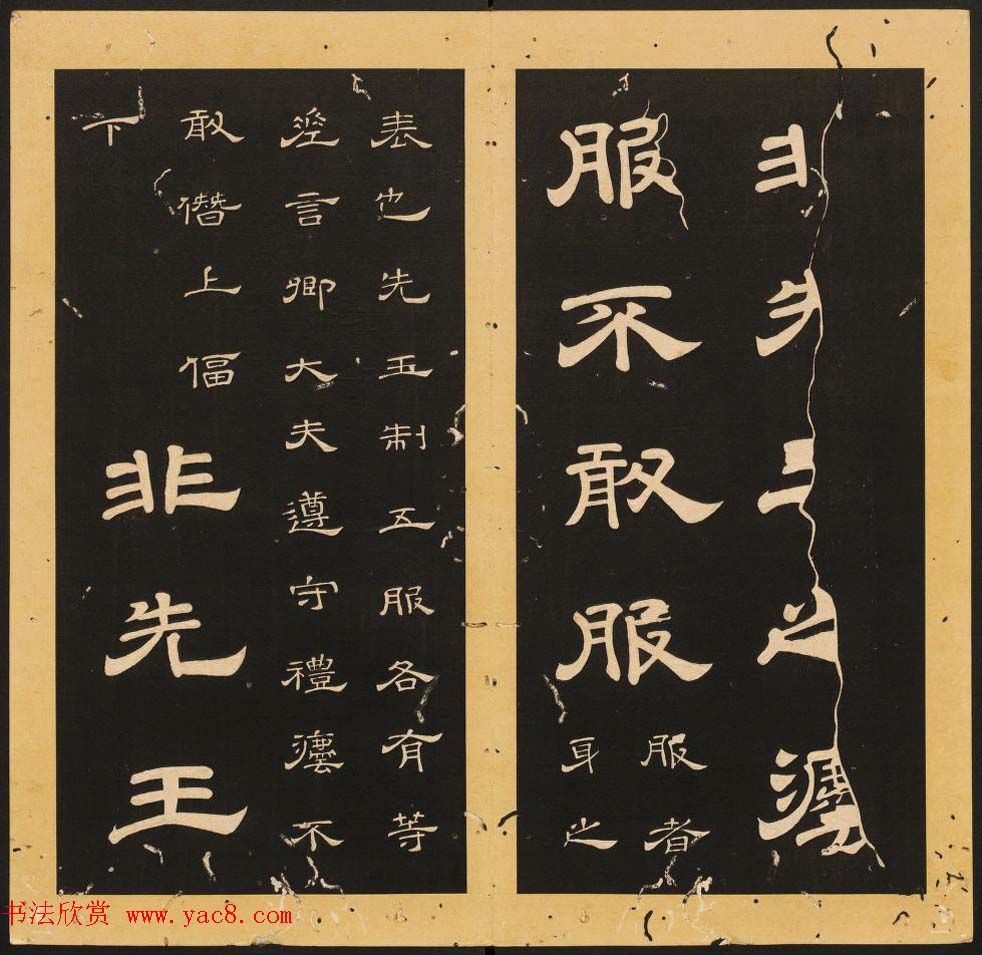 非先王之灋
服不敢服
服者
身之
表也先王制五服各有等
差言卿大夫遵守禮灋不
敢僭上偪
下
非先王
书法欣赏 www.yac8.com